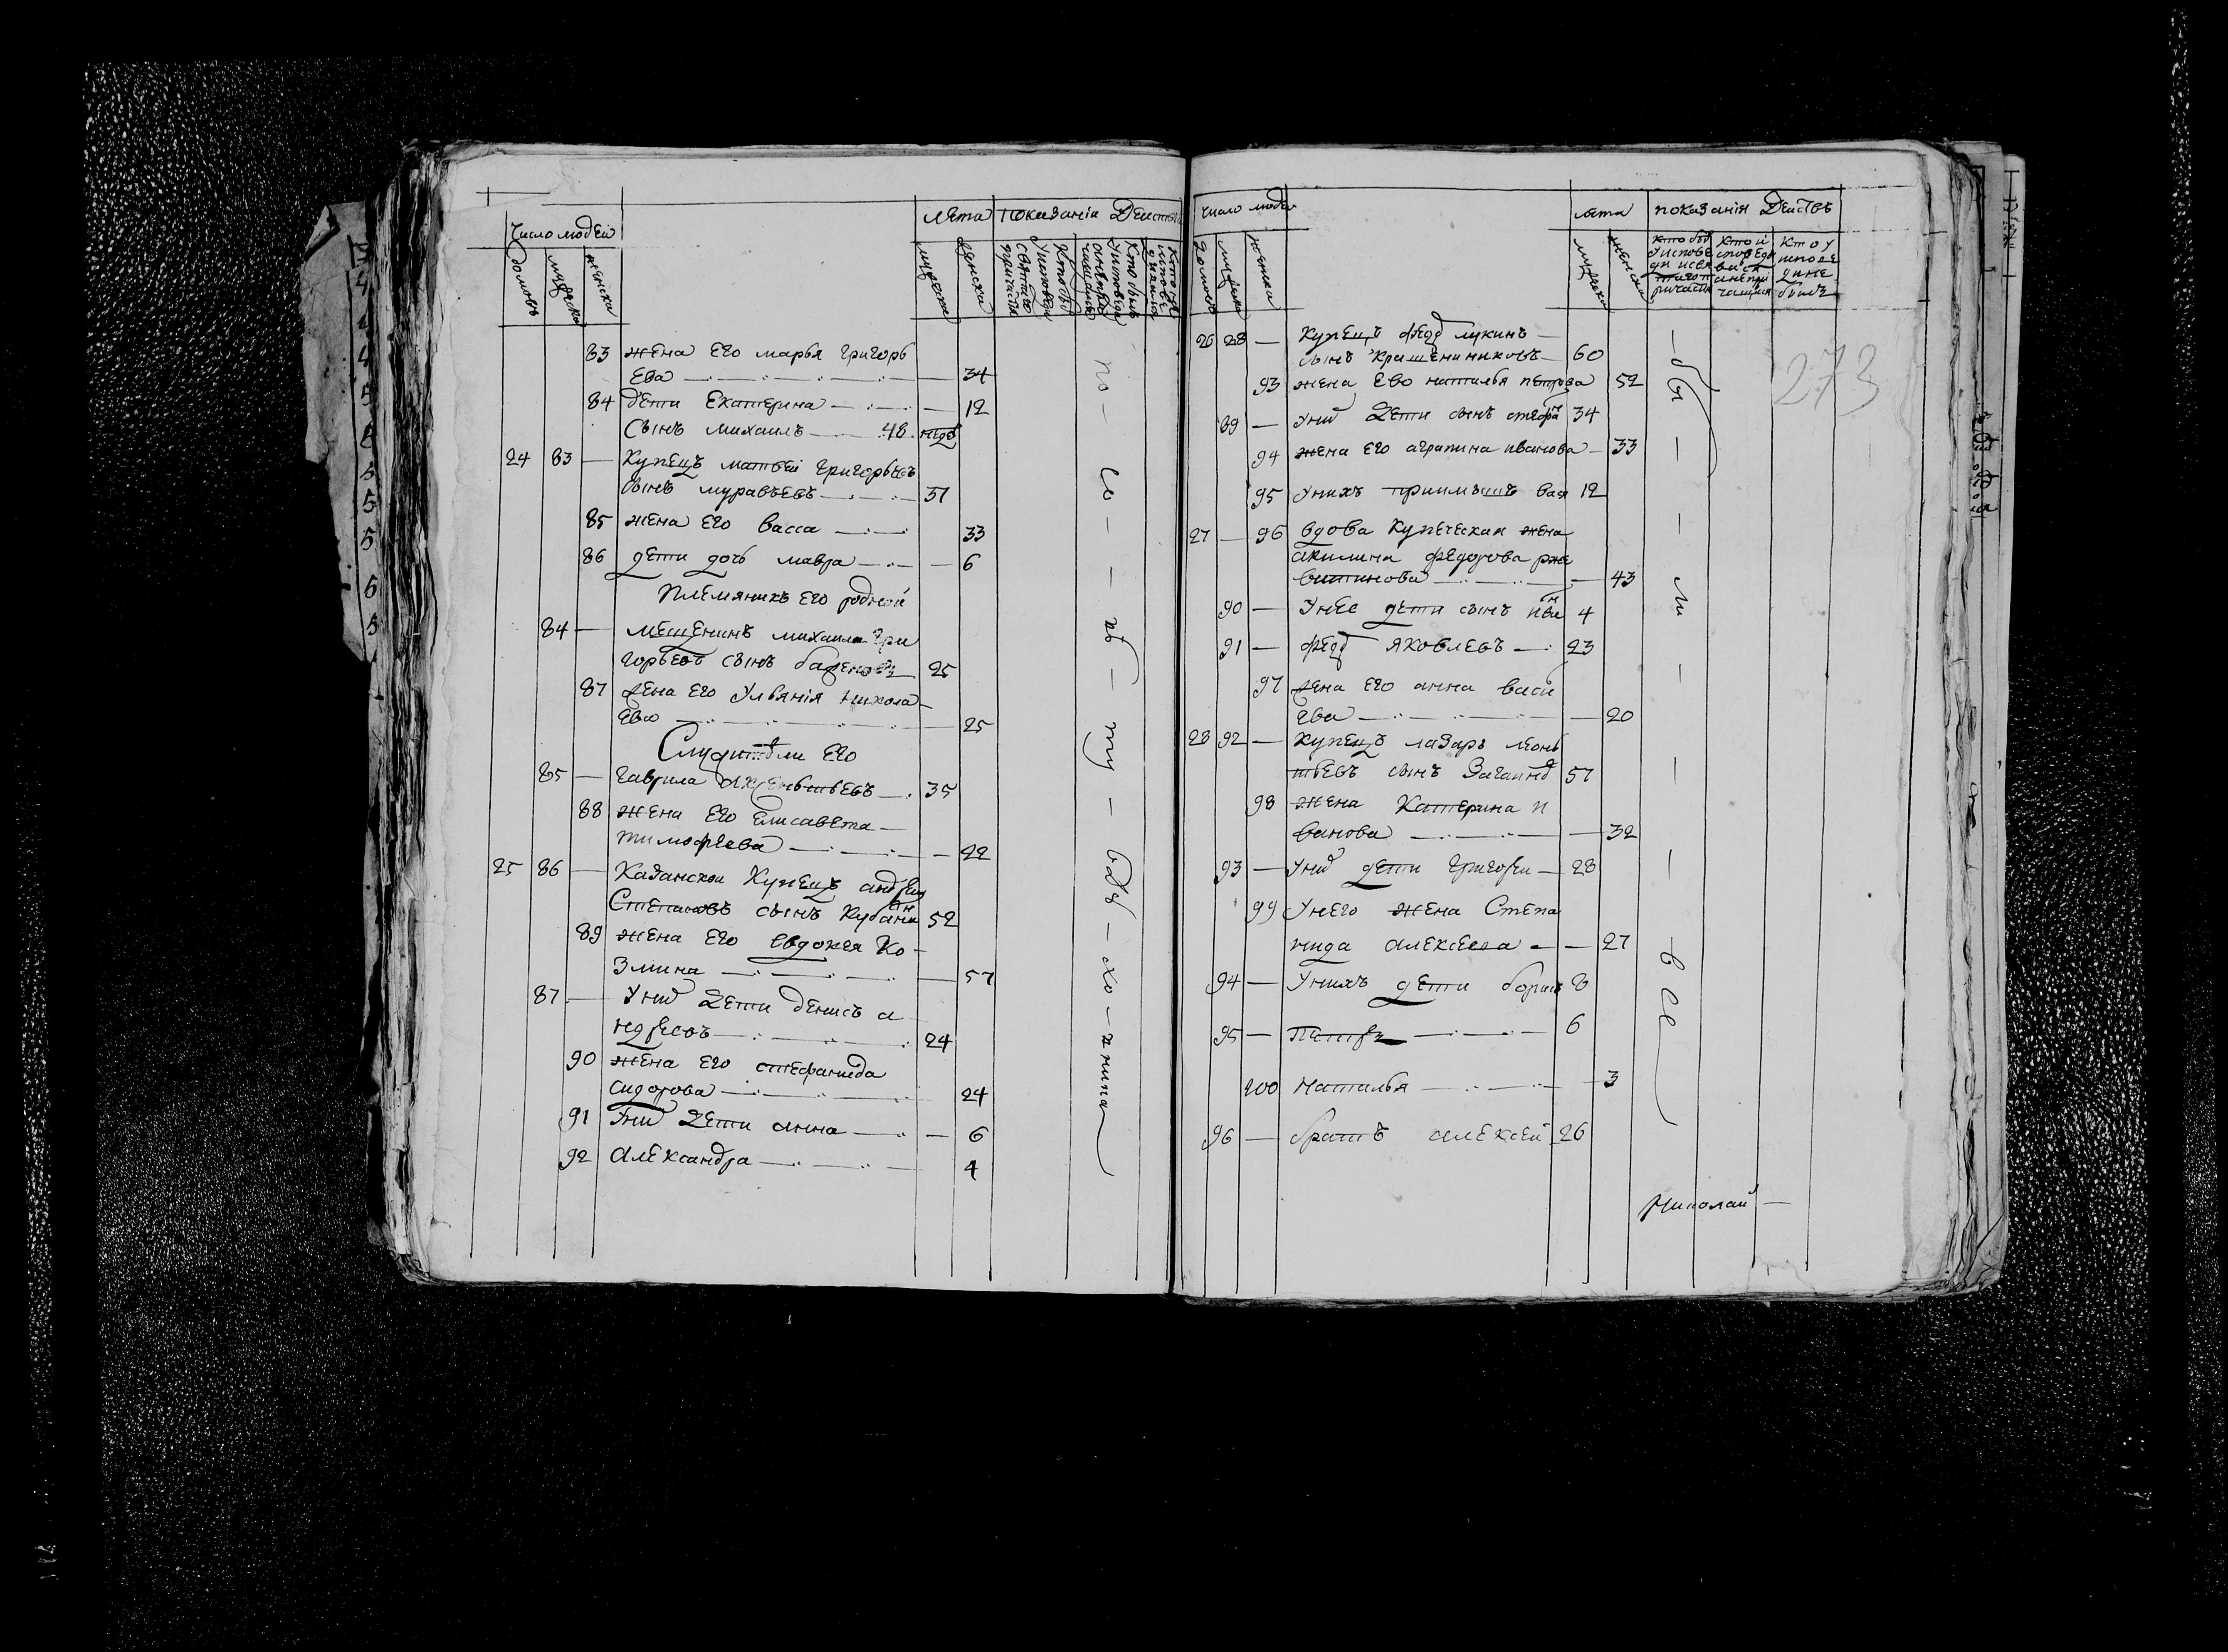 Число людей
лѣта показанія Действ
домовъ
мужеска
женска
мужеска
женска
83 жена его марья григорь
ева 34
84 дети Екатерина 12
Сынъ михаилъ 48 недѣ
24 83 Купецъ матвей григорьевъ
сынъ муравьевъ 37
85 жена его васса 33
86 дети дочь мавра 6
племяникъ его родной
84 мещенинъ михаила гри
горьевъ сынъ 25
87 жена его Ульянія никола
ева 25
Служители его
85 гаврила 35
88 жена его Елисавета
тимофеева 22
25 86 Казанской Купецъ андрей
Степановъ сынъ Кубанин 52
89 жена его евдокея Ко
змина 57
87 Уних дети денисъ а
ндреевъ 24
90 жена его стефанида
сидорова 24
91 Уних дети анна 6
92 Александра 4
число людей
лета показанія Действъ
домовъ
мужеска
женска
мужеска
женска
Кто был
Уиспове
ди исвя
таго п
ричастия
Кто и
споведо
вался
анепри
чащался
Кто у
исповѣ
ди не
былъ
273
26 88 Купецъ федр лукинъ
сынъ Крашениниковъ 60
93 жена Ево наталья петрова 52
89 Уних Дети сынъ стефан 34
94 жена Его аграпина иванова 33
95 Унихъ приимышъ вася 12
27 96 вдова Купеческая жена
акилина федорова рже
витинова 43
90 Унее дети сынъ иван 4
91 федр яковлевъ 23
97 жена его анна васи
ева 20
28 92 Купецъ лазарь леонь
тьевъ сынъ 57
98 жена Катерина и
ванова 32
93 Уних дети григореи 28
99 Унего жена Степа
нида алексеева 27
94 Унихъ дети борисъ 8
95 петръ 6
100 наталья 3
96 братъ алексеи 26
бы
ли
все
Николаи